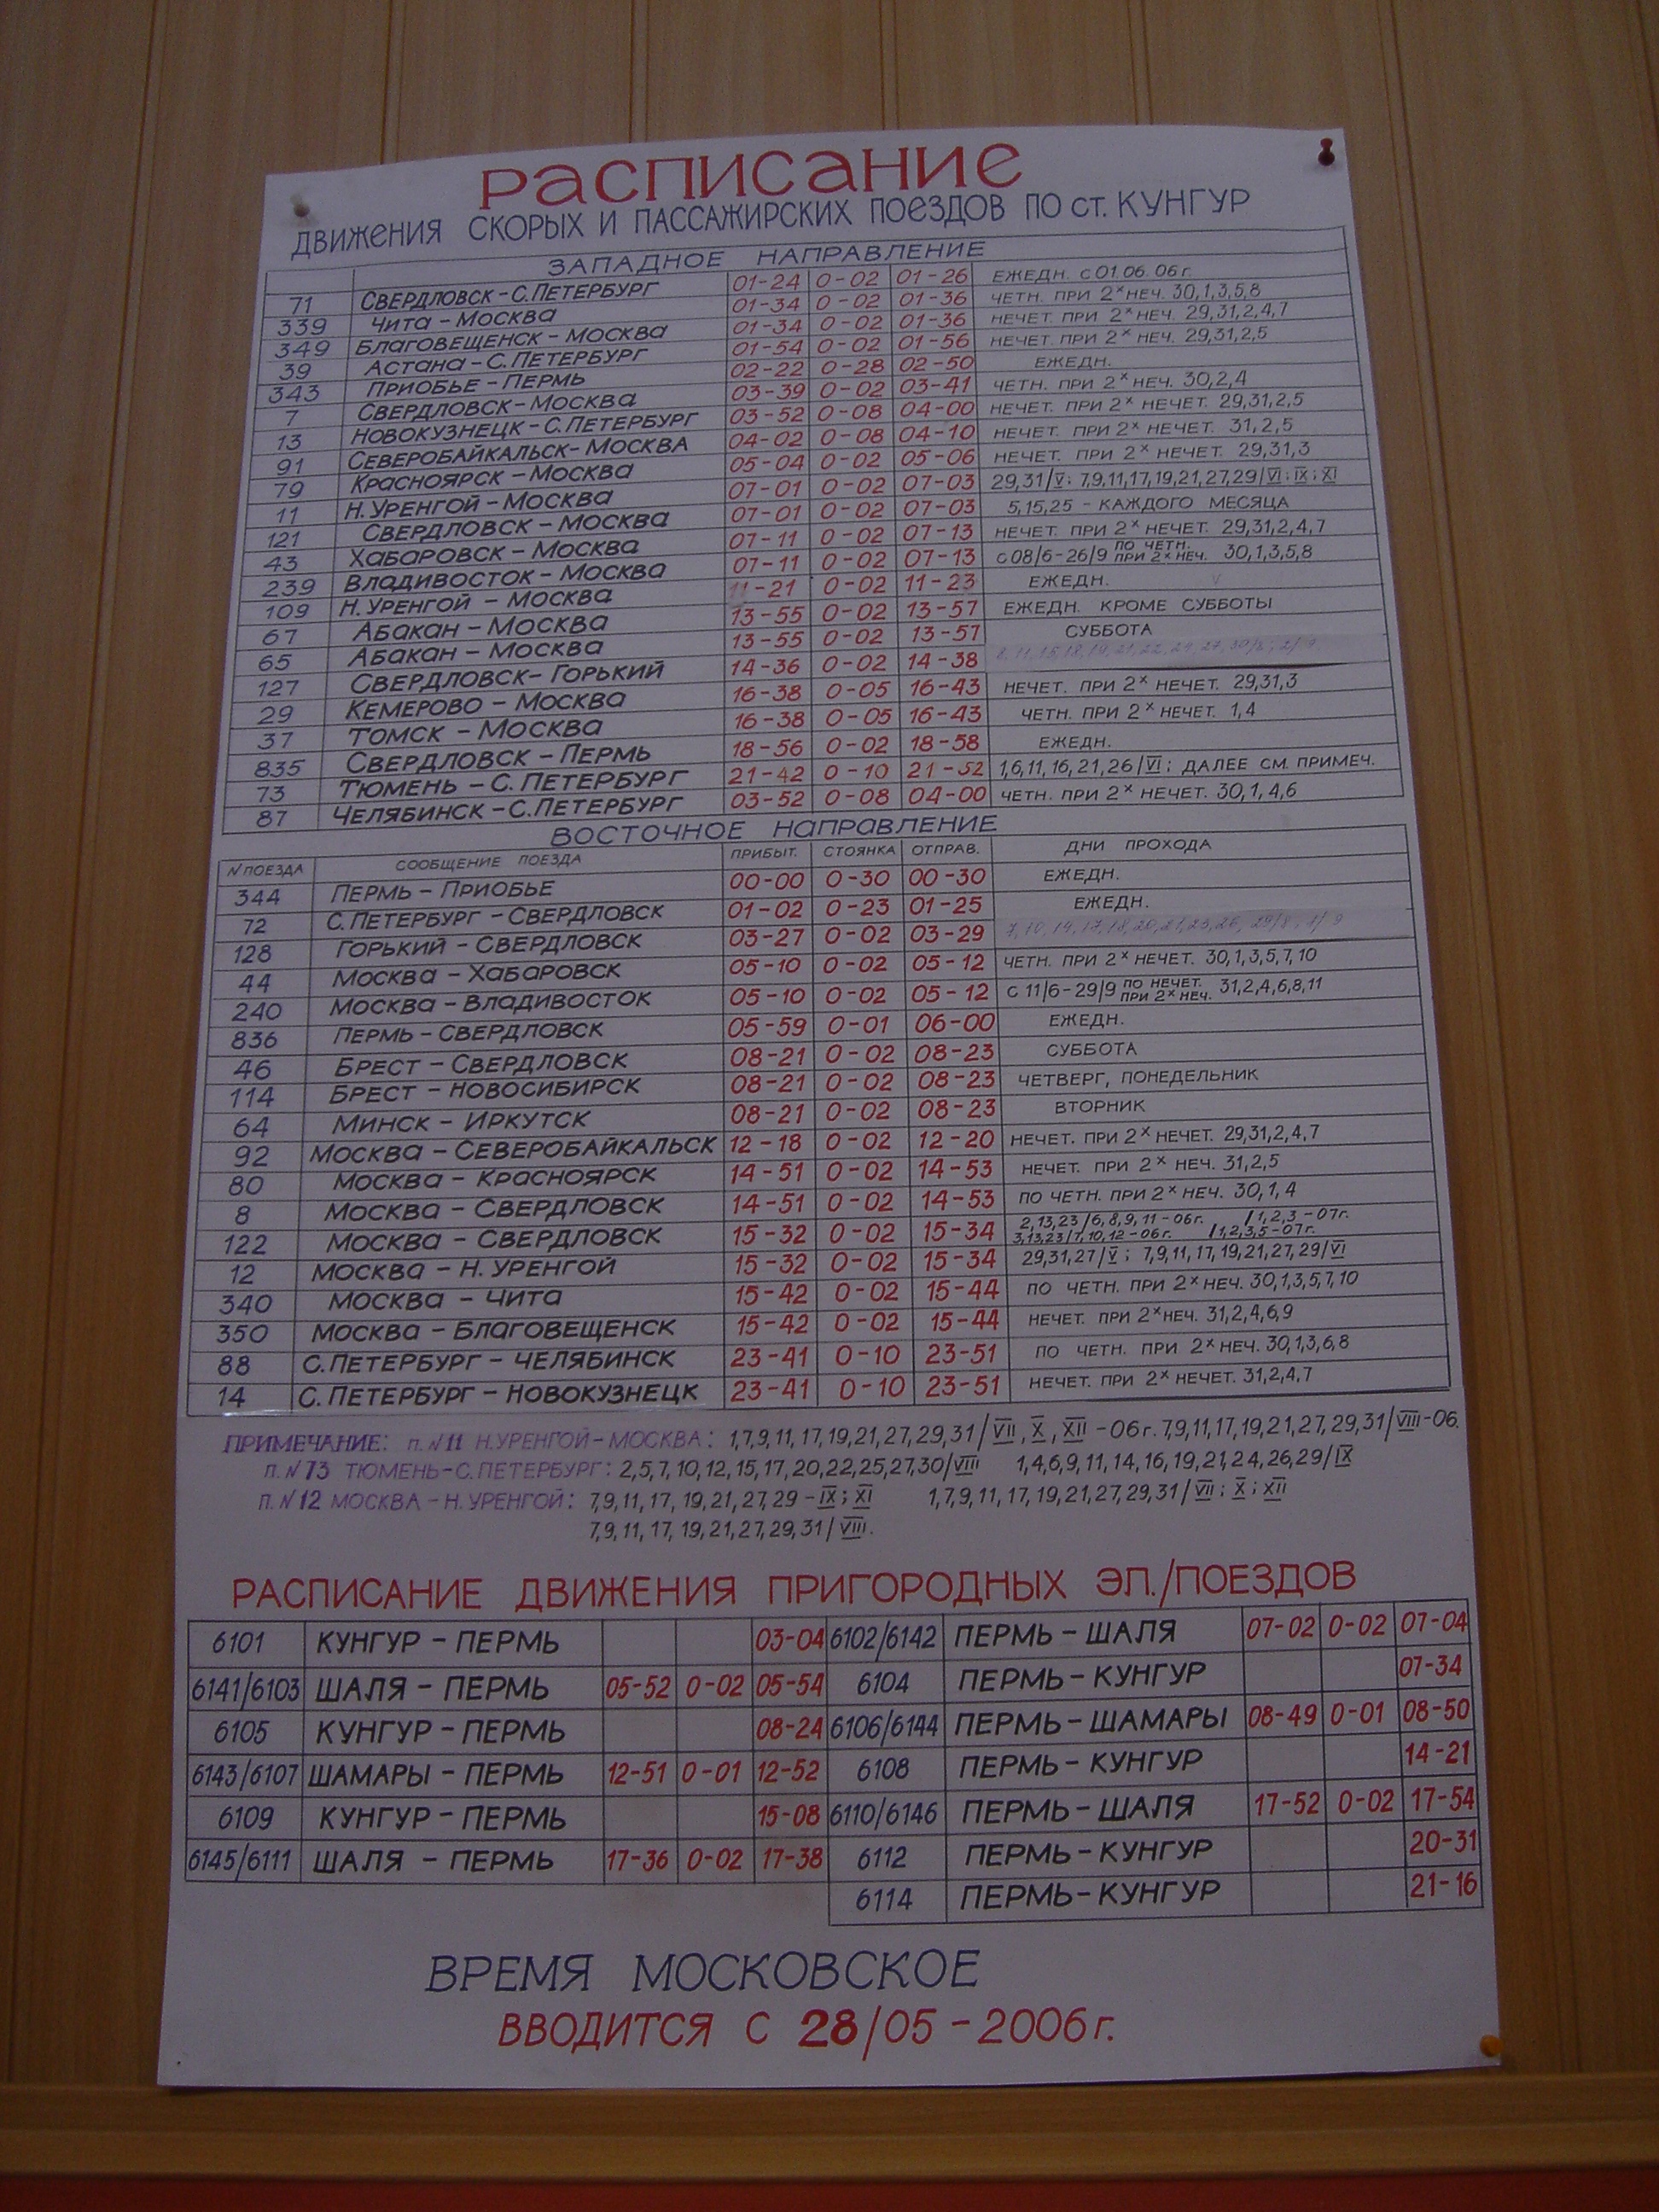 Расписание
движения скорых и пассажирских поездов по ст. Кунгур
Западное направление
71 Свердловск-С.Петербург 01-24 0-02 01-26 ежедн. с 01.06.06г.
339 Чита-Москва 01-34 0-02 01-36 четн. при 2х неч. 30,1,3,5,8
349 Благовещенск-Москва 01-34 0-02 01-36 нечет. при 2х неч. 29,31,2,4,7
39 Астана-С.Петербург 01-54 0-02 01-56 нечет. при 2х неч. 29,31,2,5
343 Приобье-Пермь 02-22 0-28 02-50 ежедн.
7 Свердловск-Москва 03-39 0-02 03-41 четн. при 2х неч. 30,2,4
13 Новокузнецк-С.Петербург 03-52 0-08 04-00 нечет. при 2х нечет. 29,31,2,5
91 Северобайкальск-Москва 04-02 0-08 04-10 нечет. при 2х нечет. 31,2,5
79 Красноярск-Москва 05-04 0-02 05-06 нечет. при 2х нечет. 29,31,3
11 Н.Уренгой-Москва 07-01 0-02 07-03 29,31/V; 7,9,11,17,19,21,27,29/VI; IX; XI
121 Свердловск-Москва 07-01 0-02 07-03 5,15,25 - каждого месяца
43 Хабаровск-Москва 07-11 0-02 07-13 нечет. при 2х нечет. 29,31,2,4,7
239 Владивосток-Москва 07-11 0-02 07-13 с 08/6-26/9 по четн. при 2х неч. 30,1,3,5,8
109 Н.Уренгой-Москва 11-21 0-02 11-23 ежедн.
67 Абакан-Москва 13-55 0-02 13-57 ежедн. кроме субботы
65 Абакан-Москва 13-55 0-02 13-57 суббота
127 Свердловск-Горький 14-36 0-02 14-38
29 Кемерово-Москва 16-38 0-05 16-43 нечет. при 2х нечет. 29,31,3
37 Томск-Москва 16-38 0-05 16-43 четн. при 2х нечет. 1,4
835 Свердловск-Пермь 18-56 0-02 18-58 ежедн.
73 Тюмень-С.Петербург 21-42 0-10 21-52 1,6,11,16,21,26/VI; далее см. примеч.
87 Челябинск-С.Петербург 03-52 0-08 04-00 четн. при 2х нечет. 30,1,4,6
Восточное направление
№ поезда сообщение поезда прибыт. стоянка отправ. дни прохода
344 Пермь-Приобье 00-00 0-30 00-30 ежедн.
72 С.Петербург-Свердловск 01-02 0-23 01-25 ежедн.
128 Горький-Свердловск 03-27 0-02 03-29
44 Москва-Хабаровск 05-10 0-02 05-12 четн. при 2х нечет. 30,1,3,5,7,10
240 Москва-Владивосток 05-10 0-02 05-12 с 11/6-29/9 по нечет. при 2х неч. 31,2,4,6,8,11
836 Пермь-Свердловск 05-59 0-01 06-00 ежедн.
46 Брест-Свердловск 08-21 0-02 08-23 суббота
114 Брест-Новосибирск 08-21 0-02 08-23 четверг, понедельник
64 Минск-Иркутск 08-21 0-02 08-23 вторник
92 Москва-Северобайкальск 12-18 0-02 12-20 нечет. при 2х нечет. 29,31,2,4,7
80 Москва-Красноярск 14-51 0-02 14-53 нечет. при 2х неч. 31,2,5
8 Москва-Свердловск 14-51 0-02 14-53 по четн. при 2х неч. 30,1,4
122 Москва-Свердловск 15-32 0-02 15-34 2,13,23/6,8,9,11-06г. /1,2,3-07г. 3,13,23/7,10,12-06г. /1,2,3,5-07г.
12 Москва-Н.Уренгой 15-32 0-02 15-34 29,31,27/V; 7,9,11,17,19,21,27,29/VI
340 Москва-Чита 15-42 0-02 15-44 по четн. при 2х неч. 30,1,3,5,7,10
350 Москва-Благовещенск 15-42 0-02 15-44 нечет. при 2х неч. 31,2,4,6,9
88 С.Петербург-Челябинск 23-41 0-10 23-51 по четн. при 2х неч. 30,1,3,6,8
14 С.Петербург-Новокузнецк 23-41 0-10 23-51 нечет. при 2х нечет. 31,2,4,7
Примечание: п.№11 Н.Уренгой-Москва: 1,7,9,11,17,19,21,27,29,31/VII, X, XII-06г. 7,9,11,17,19,21,27,29,31/VIII-06.
п.№73 Тюмень-С.Петербург: 2,5,7,10,12,15,17,20,22,25,27,30/VIII 1,4,6,9,11,14,16,19,21,24,26,29/IX
п.№12 Москва-Н.Уренгой: 7,9,11,17,19,21,27,29-IX; XI 1,7,9,11,17,19,21,27,29,31/VII; X; XII
7,9,11,17,19,21,27,29,31/VIII.
РАСПИСАНИЕ ДВИЖЕНИЯ ПРИГОРОДНЫХ ЭЛ./ПОЕЗДОВ
6101 КУНГУР-ПЕРМЬ 03-04 6102/6142 ПЕРМЬ-ШАЛЯ 07-02 0-02 07-04
6141/6103 ШАЛЯ-ПЕРМЬ 05-52 0-02 05-54 6104 ПЕРМЬ-КУНГУР 07-34
6105 КУНГУР-ПЕРМЬ 08-24 6106/6144 ПЕРМЬ-ШАМАРЫ 08-49 0-01 08-50
6143/6107 ШАМАРЫ-ПЕРМЬ 12-51 0-01 12-52 6108 ПЕРМЬ-КУНГУР 14-21
6109 КУНГУР-ПЕРМЬ 15-08 6110/6146 ПЕРМЬ-ШАЛЯ 17-52 0-02 17-54
6145/6111 ШАЛЯ-ПЕРМЬ 17-36 0-02 17-38 6112 ПЕРМЬ-КУНГУР 20-31
6114 ПЕРМЬ-КУНГУР 21-16
ВРЕМЯ МОСКОВСКОЕ
ВВОДИТСЯ С 28/05-2006г.